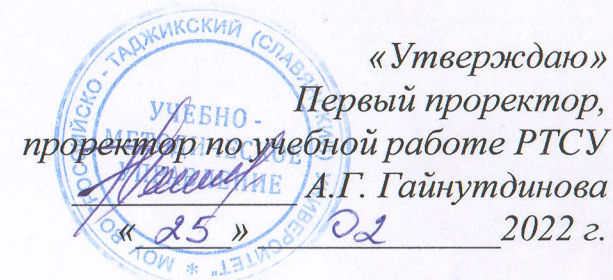 «Утверждаю»
Первый проректор,
проректор по учебной работе РТСУ
А.Г. Гайнутдинова
« 25 » 02 2022 г.
МОУ ВО РОССИЙСКО - ТАДЖИКСКИЙ (СЛАВЯНСКИЙ) УНИВЕРСИТЕТ" *
УЧЕБНО -
МЕТОДИЧЕСКОЕ
УПРАВЛЕНИЕ